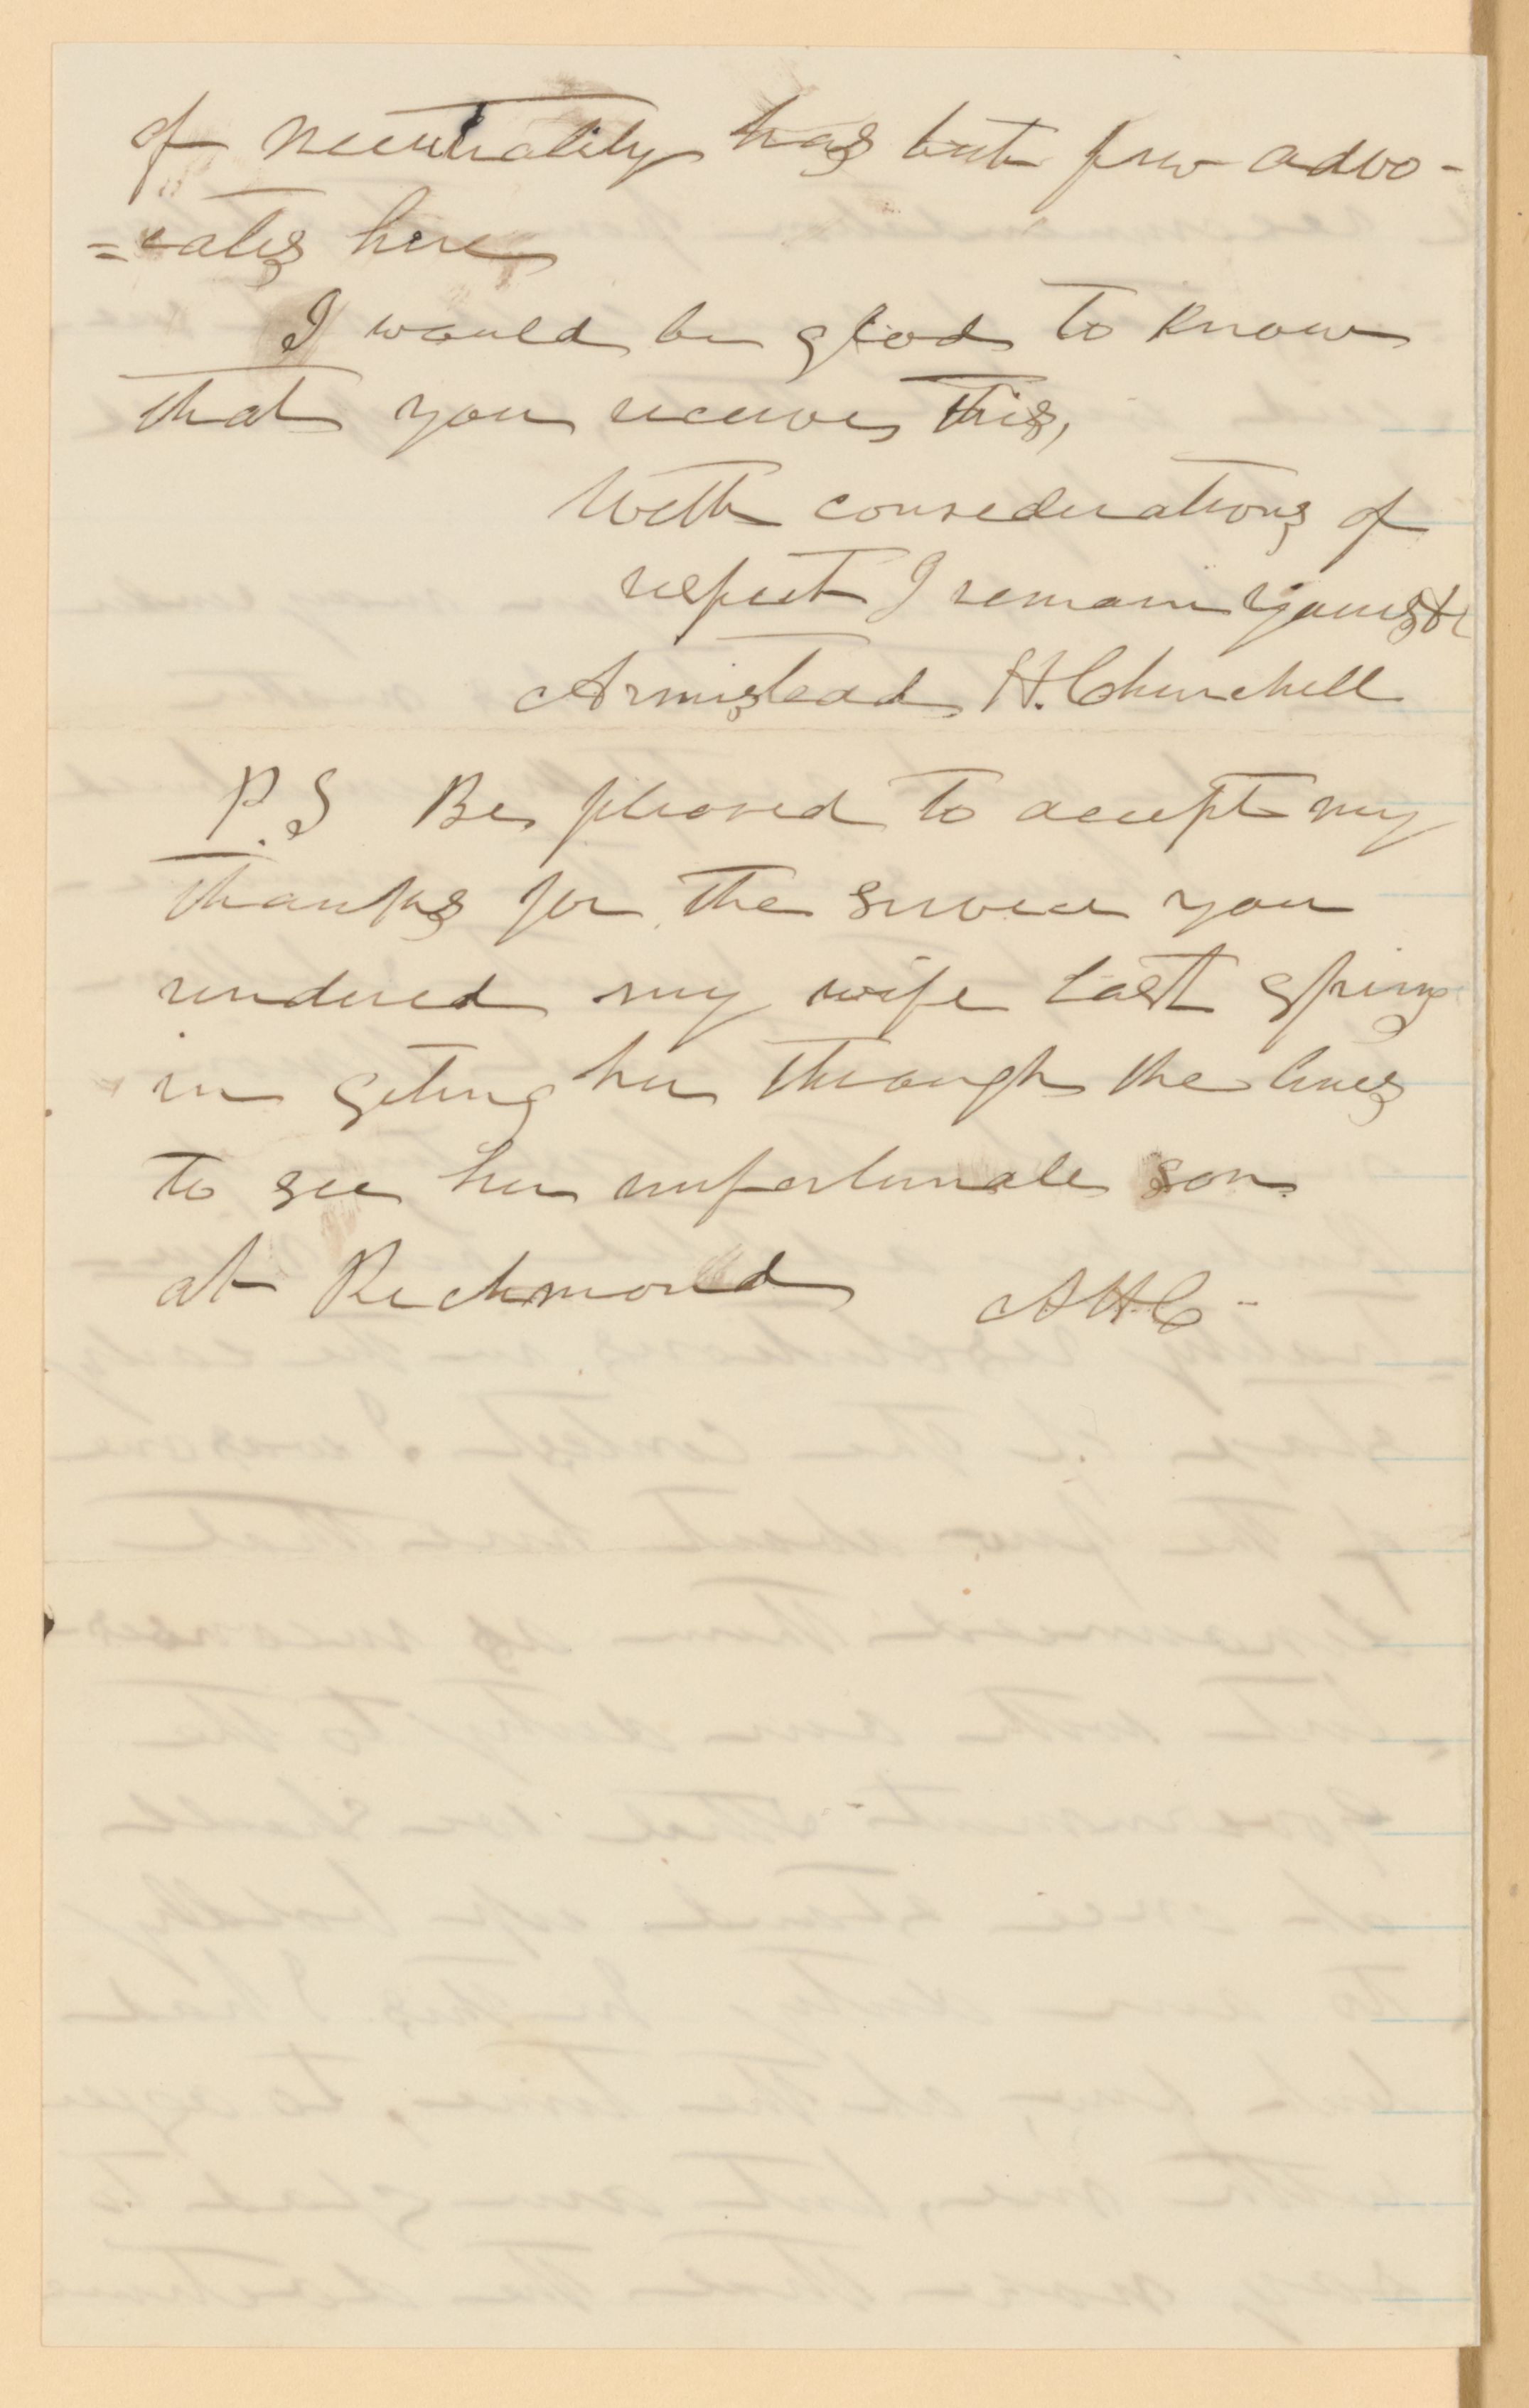 of neutrality has but few advo-
=cates here
I would be glad to know
that you receive this,
With considerations of
respect I remain yours &c
Armistead H. Churchill
P.S Be pleased to accept my
thanks for the service you
rendered my wife last spring
in geting her through the lines
to see her unfortunate son
at Richmond AHC-